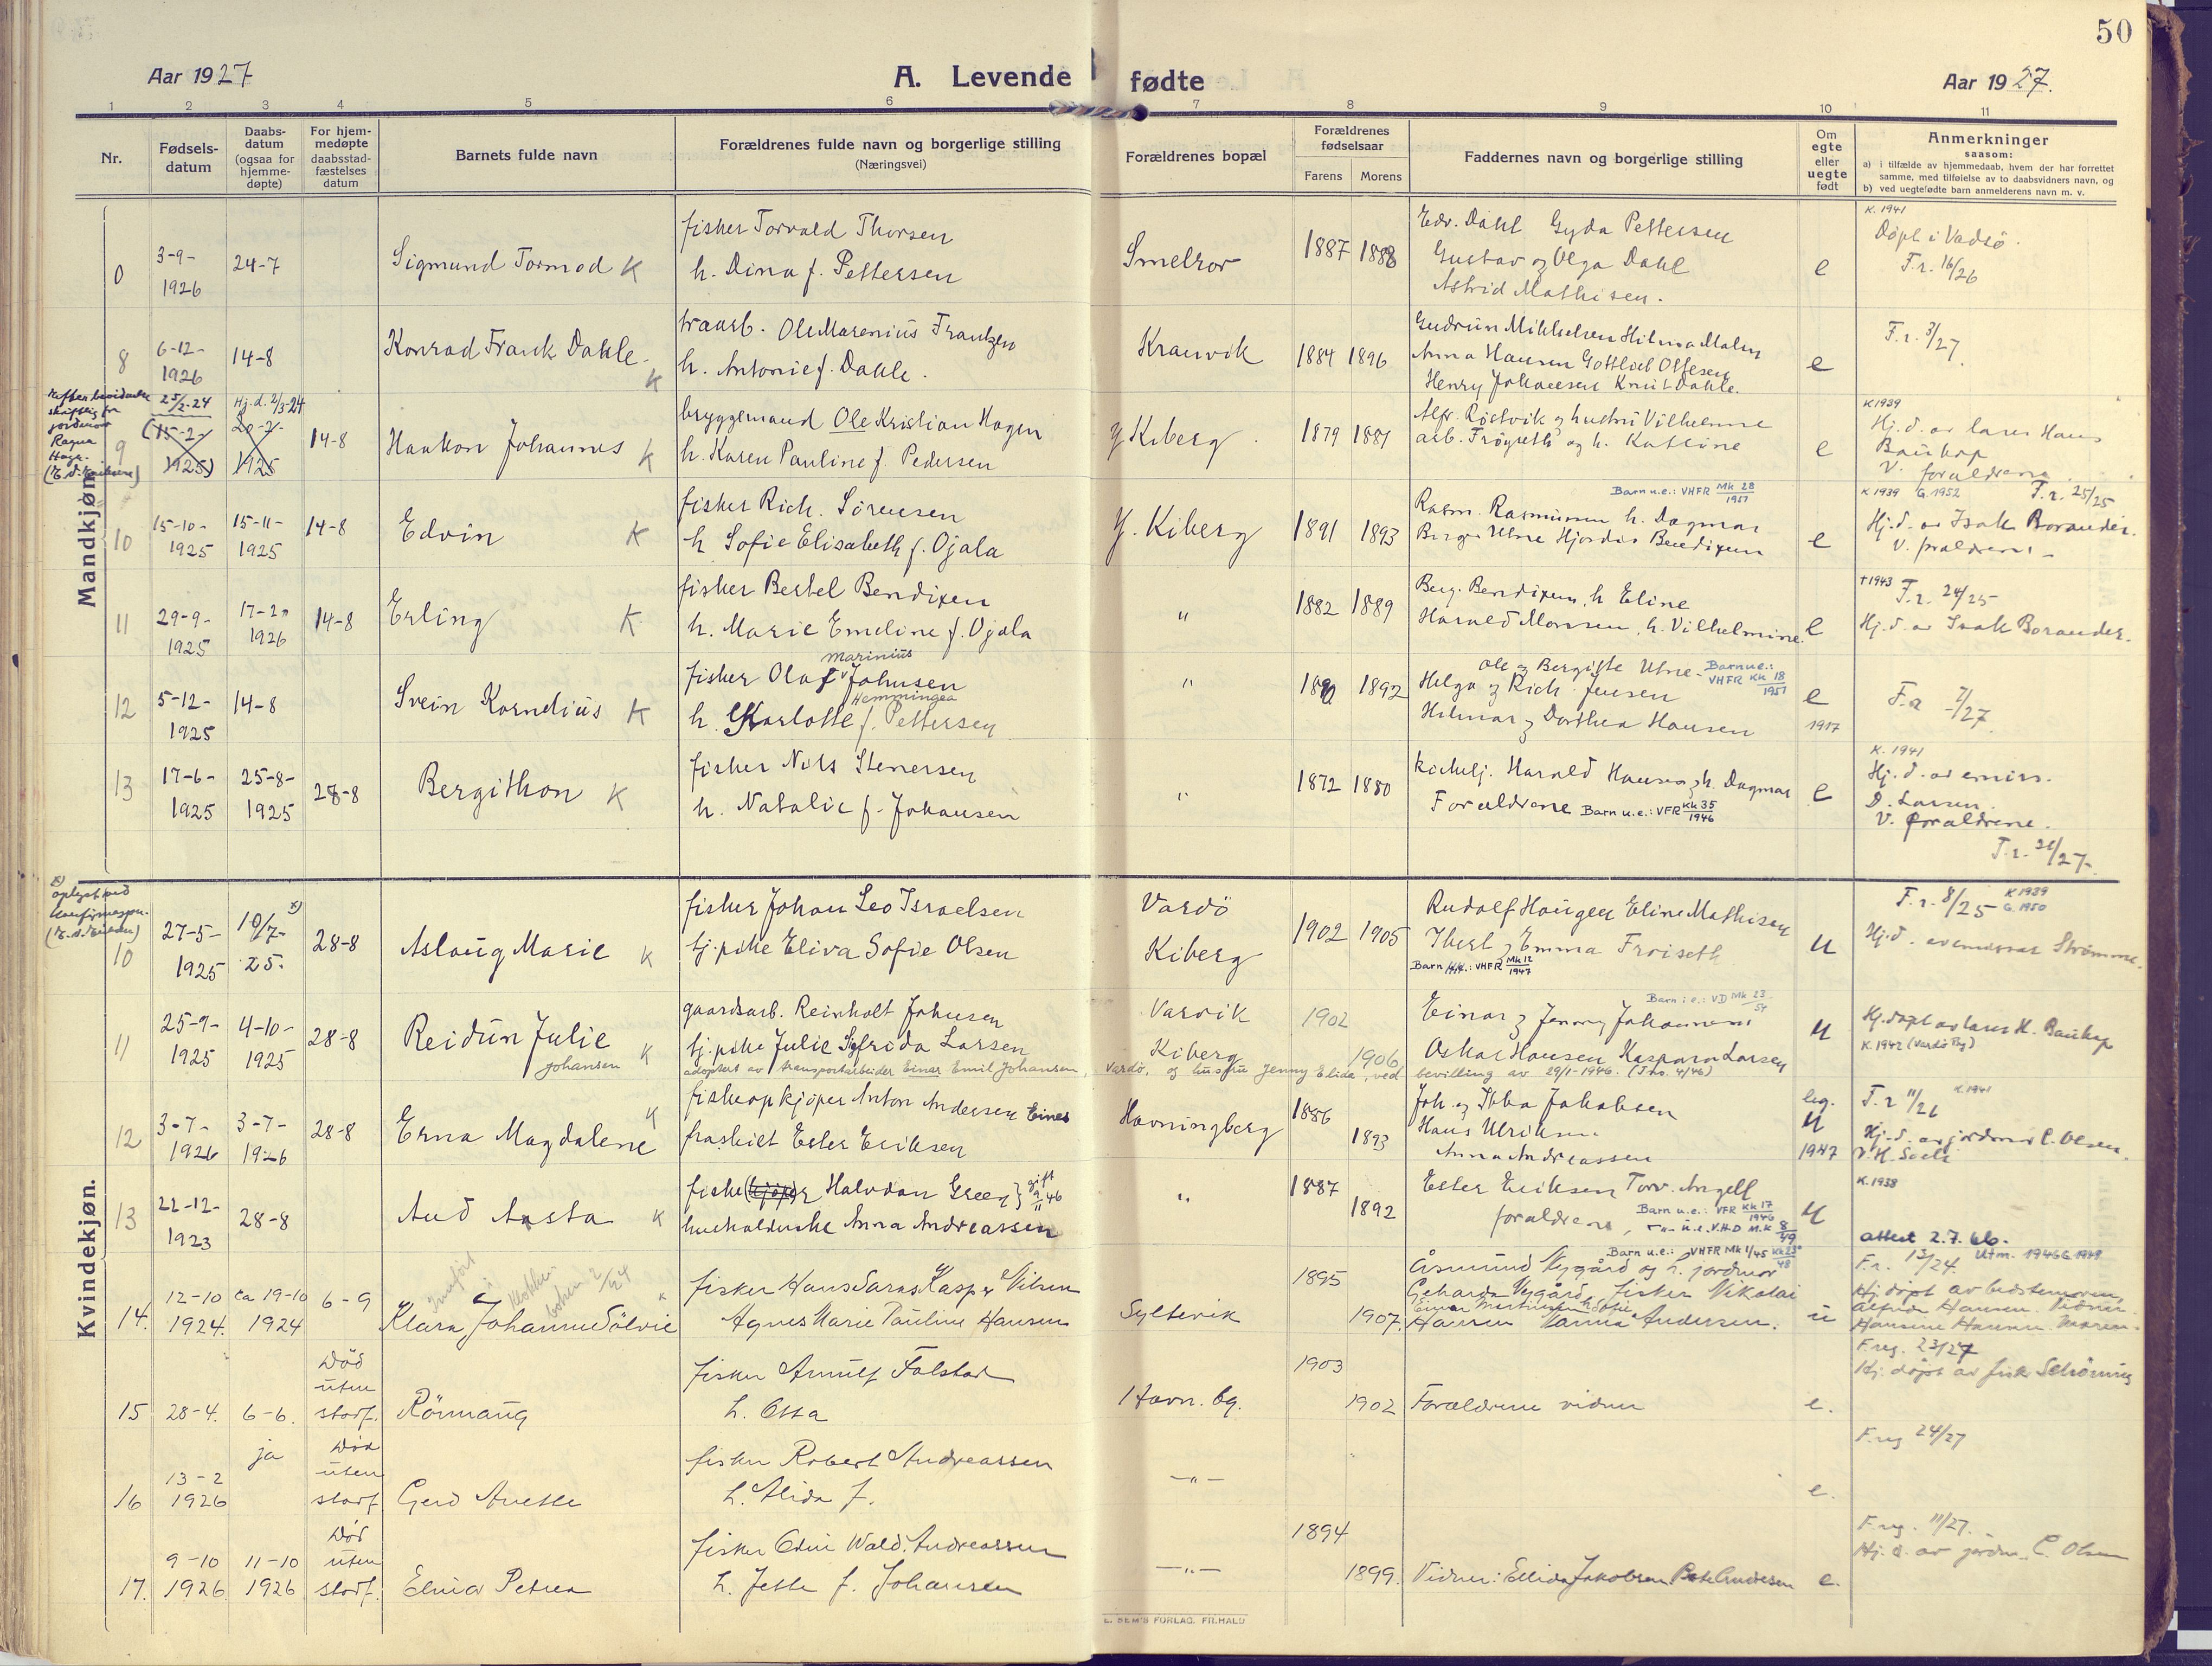 50
Aar 1927
A. Levende fødte
Aar 1927.
1 2 3 4 5 6 7 8 9 10 11
Nr.
Fødsels-
datum
Daabs-
datum
(ogsaa for
hjemme-
døpte)
For hjem-
medøpte
daabsstad-
fæstelses
datum
Barnets fulde navn
Forældrenes fulde navn og borgerlige stilling
(Næringsvei)
Forældrenes bopæl
Forældrenes
fødselsaar
Farens Morens
Faddernes navn og borgerlige stilling
Om
egte
eller
uegte
født
Anmerkninger
saasom:
a) i tilfælde av hjemmedaab, hvem der har forrettet
samme, med tilføielse av to daabsvidners navn, og
b) ved uegtefødte barn anmelderens navn m. v.
Mandkjøn
0 3-9-1926 24-7 Sigmund Tormod K
fisker Torvald Thorsen
h. Dina f. Pettersen
Smelror 1887 1888
Edv. Dahl Gyda Pettersen
Gustav og Olga Dahl
Astrid Mathisen.
e
K. 1941
Döpt i Vadsö.
F.r. 16/26
8 6-12-1926 14-8 Konrad Frank Dahle K
Ole Marenius Frantzen
h. Antonie f. Dahle.
Kramvik 1884 1896
Gudrun Mikkelsen Hilma Malin
Anna Hansen Gottlieb Ottesen
Henry Johansen Knut Dahle.
e
F.r. 3/27.
9 25/2-24 Hj.d. 2/3-24
(15-2-1925) 20-2-1925 14-8 Haakon Johannes K
bryggemand Ole Kristian Hagen
h. Karen Pauline f. Pedersen
Y Kiberg 1879 1881
Alfr. Röstvik og hustru Vilhelmine
arb. og h.
e
K 1939
Hj.d. av lærer Hans
Baukop
V. forældrene.
F.r. 25/25
10 15-10-1925 15-11-1925 14-8 Edvin K
fisker Rich. Sörensen
h Sofie Elisabeth f. Ojala
Y. Kiberg 1891 1893
Barn u.e.: VHFR Mk 28 1951
Rasm. Rasmussen h. Dagmar
Utne Hjördis Bendixen
e
K 1939 G. 1952
Hj.d. av Isak Borander.
V. forældrene
11 29-9-1925 17-2-1926 14-8 Erling K
fisker Bertel Bendixen
h. Marie Emeline f. Ojala
" 1882 1889
Berg. Bendixen, h Eline
Harald Monsen, h. Vilhelmine.
e
† 1943 F.r. 24/25
Hj.d. av Isak Borander.
12 5-12-1925 14-8 Svein Kornelius K
marinius
fisker Olaf Johnsen
Hemmingea
h. Charlotte f. Pettersen
" 1890 1892
Ole og Bergitte Utne
Barn u.e.: VHFR Kk 18 1951
Helga og Rich. Jensen
Hilmar og Dorthea Hansen
e
1917
F.r. 7/27.
13 17-6-1925 25-8-1925 28-8 Bergithon K
fisker Nils Stenersen
h. Natalie f. Johansen
" 1872 1880
Harald Hansen og h. Dagmar
Forældrene Barn u.e.: VFR Kk 35 1946
e
K. 1941
Hj.d. av emiss.
D. Larsen.
V. forældrene.
Kvindekjøn.
10 27-5-1925 10/7-25. x) 28-8 Aslaug Marie K
fisker Johan Leo Israelsen
tj.pike Eliva Sofie Olsen
Vardö
Kiberg
1902 1905
Rudolf Haugen Eline Mathisen
og Emma Fröiseth
VHFR Mk 12 1947
u
F.r. 8/25 K 1939
G. 1950
Hj.d. av emissær Strömme.
11 25-9-1925 4-10-1925 28-8 Reidun Julie K
Johansen
gaardsarb. Reinholt Johnsen
tj.pike Julie Sigfrida Larsen
adoptert av transportarbeider Einar Emil Johansen, Vardø, og hustru Jenny Elida, ved bevilling av 29/1-1946. (J.no. 4/46)
Varvik
Kiberg
1902 1906
Barn i e.: VD Mk 23 54
Einar og Jenny Johannesen
Oskar Hansen Kaspara Larsen
u
Hj.døpt av lærer H. Baukop
K. 1942 (Vardø By)
12 3-7-1926 3-7-1926 28-8 Erna Magdalene K
fiskeopkjöper Anton Andersen Eines
fraskilt Ester Eriksen
Havningberg 1886 1893
Joh. og Ebba Jakobsen
Hans Ulriksen
Anna Andreassen
leg.
u
1947
F.r 11/26 K. 1941
Hj.d. av jordmor C. Olsen.
13 22-12-1923 28-8 Aud Aasta K
fisker Halvdan Green } gift 9/11 46
husholderske Anna Andreassen
" 1887 1892
Ester Eriksen Torv. Angell
forældrene Barn u.e.: VFR Kk 17 1946
u.e. V.H.D M.K 8 49
u
K. 1938
attest 2.7.66.
Barn u.e.: VHFR Mk 1/45
14. 12-10 1924. ca 19-10 1924 6-9 Klara Johanne Sölvie
fisker Hans Kasper Nilsen
Agnes Marie Pauline Hansen
Syltevik 1895 1907.
Åsmund Nygård og h. jordmor
Geharda Nygård, fisker Nikolai
Hansen Andersen.
u
F.r. 13/24. Utm. 1946
Hj.döpt av bedstemoren
Alfride Hansen. Vidner
Hansine Hansen
15 28-4. 6-6. Död uten stadf. Rönnaug
fisker Arnulf Falstad
h. Asta
Havn.bg. 1903 1902
Forældrene vidner
e.
F.reg. 23/27
Hj. döpt av fisker Schöning
16 13-2 1926 ja Död uten stadf. Gerd Anette
fisker Robert Andreassen
h. Alida f.
-"-
e.
F.reg 24/27
17. 9-10 1926 11-10 1926 Död uten stadf. Petrea
fisker Edin Wald. Andreassen
h. Jette f. Johansen
-"- 1894 1899.
Vidner: Ellida Jakobsen
e.
F.reg. 11/27.
Hj.d. av jordm. C. Olsen
E. SEM'S FORLAG. FR.HALD